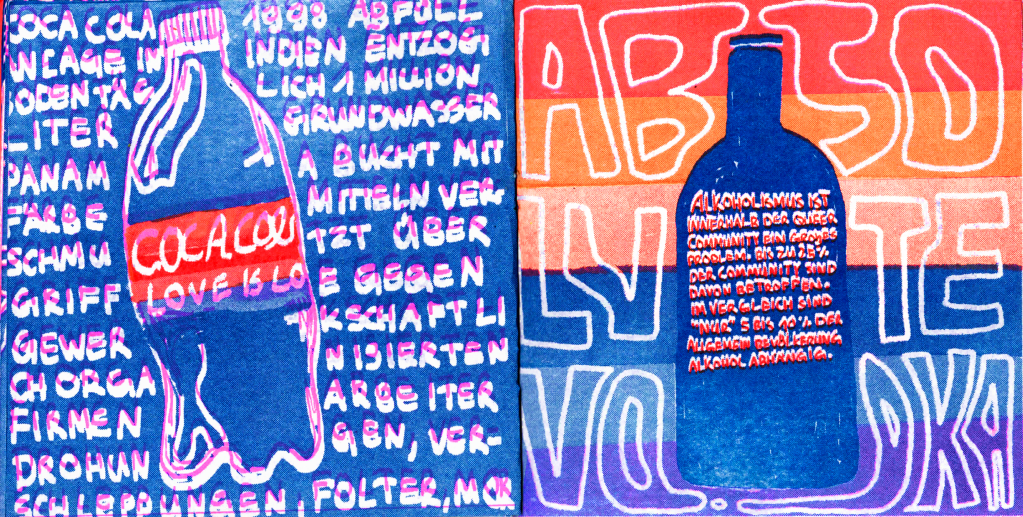 COCA COLA 1998 ABFÜLL
NLAGE IN INDIEN ENTZOG
BODEN TÄG LICH 1 MILLION
LITER GRUNDWASSER
PANAM A BUCHT MIT
FARBE MITTELN VER-
SCHMU TZT ÜBER
GRIFF E GEGEN
GEWER KSCHAFTLI
CH ORGA NISIERTEN
FIRMEN ARBEITER
DROHUN GEN, VER-
SCHLEPPUNGEN, FOLTER, MOR
COCA COLA
LOVE IS LO
ABSO
LVTE
VO.DKA
ALKOHOLISMUS IST
INNERHALB DER QUEER
COMMUNITY EIN GROßES
PROBLEM. BIS ZU 25%
DER COMMUNITY SIND
DAVON BETROFFEN.
IM VERGLEICH SIND
"NUR" 5 BIS 10% DER
ALLGEMEIN BEVÖLKERUNG
ALKOHOL ABHÄNGIG.